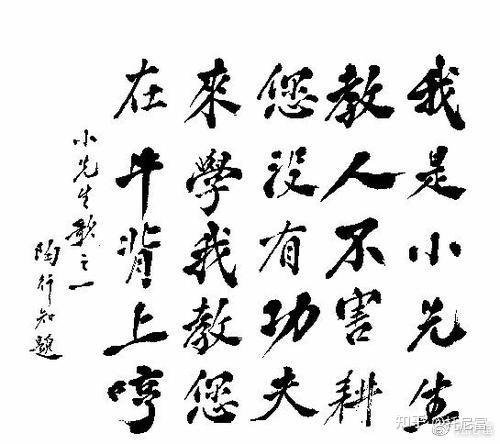 我是小先生
教人不害耕
您沒有功夫
來學我教您
在牛背上哼
小先生歌之一
陶行知題
知乎